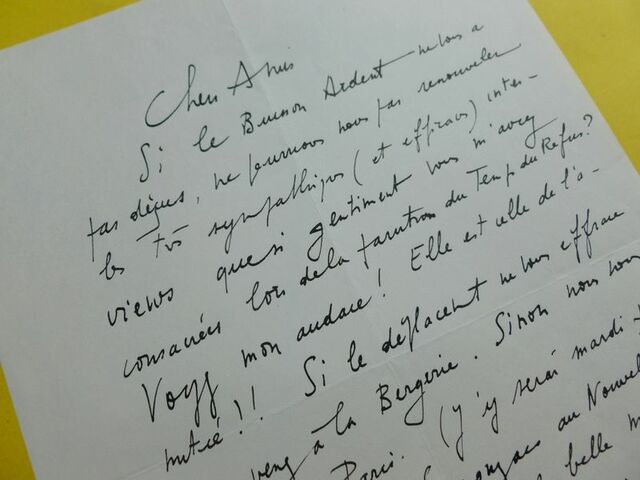 Chers Amis
Si le Buisson Ardent ne vous a
pas déçus, ne pourrions nous pas renouveler
les très sympathiques (et efficaces) inter-
views que si gentiment vous m'avez
consacrées lors de la parution du Temps du Refus?
Voyez mon audace! Elle est celle de l'a-
mitié!! Si le déplacement ne vous effraie
venez à la Bergerie. Sinon nous nous
Paris. (J'y serai mardi
au Nouvel
belle